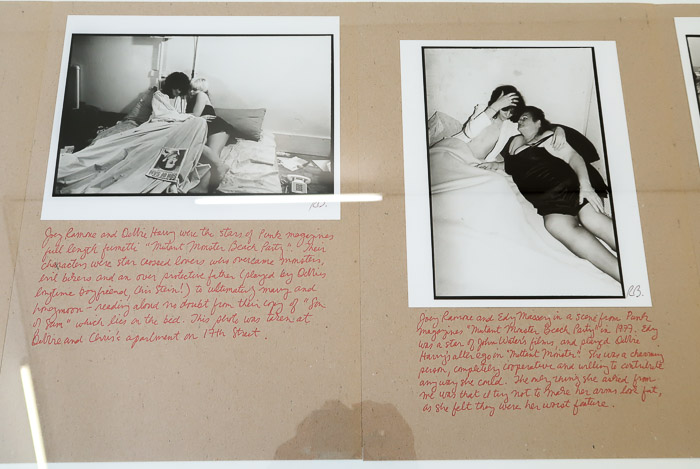 RB.
Joey Ramone and Debbie Harry were the stars of Punk magazines
full length fumetti "Mutant Monster Beach Party". Their
characters were star crossed lovers who overcame monsters,
evil bikers and an over protective father (played by Debbies
longtime boyfriend, Chris Stein!) to ultimately marry and
honeymoon - reading aloud no doubt from their copy of "Son
of Sam" which lies on the bed. This photo was taken at
Debbie and Chris's apartment on 17th Street.
RB.
Joey Ramone and Edy Massey in a scene from Punk
magazines "Mutant Monster Beach Party" in 1977. Edy
was a star of John Water's films, and played Debbie
Harry's alter ego in "Mutant Monster". She was a charming
person, completely cooperative and willing to contribute
any way she could. The only thing she asked from
me was that I try not to make her arms look fat,
as she felt they were her worst feature.